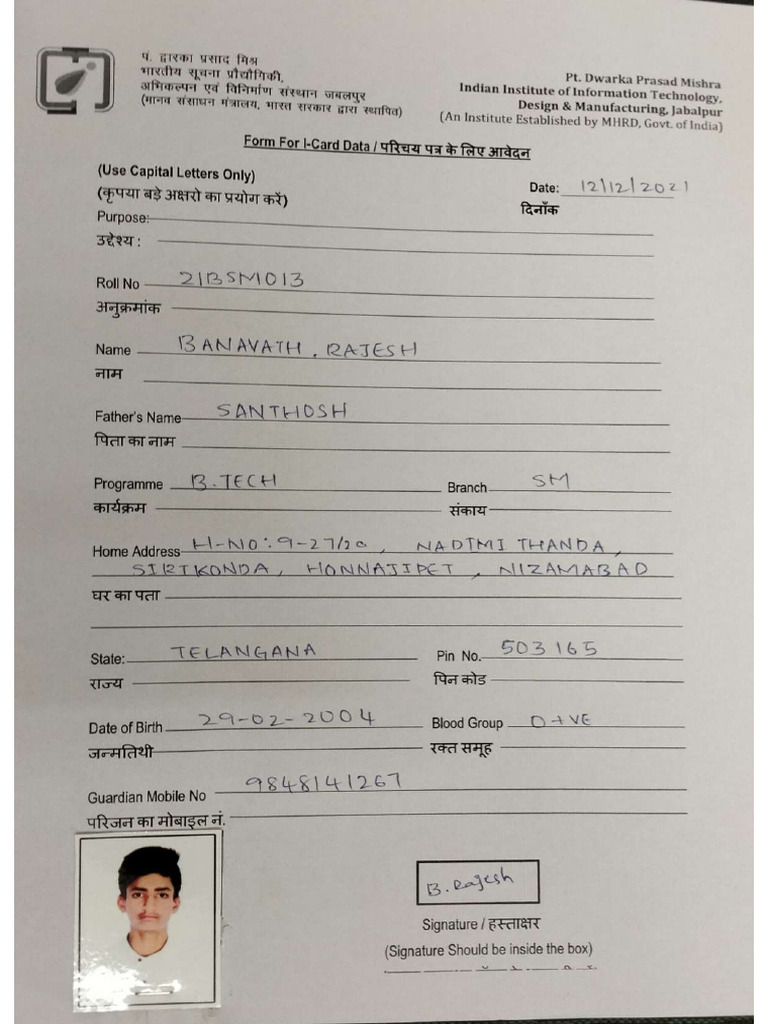 पं. द्वारका प्रसाद मिश्र
भारतीय सूचना प्रौद्योगिकी,
अभिकल्पन एवं विनिर्माण संस्थान जबलपुर
(मानव संसाधन मंत्रालय, भारत सरकार द्वारा स्थापित)
Pt. Dwarka Prasad Mishra
Indian Institute of Information Technology,
Design & Manufacturing, Jabalpur
(An Institute Established by MHRD, Govt. of India)
Form For I-Card Data / परिचय पत्र के लिए आवेदन
(Use Capital Letters Only)
(कृपया बड़े अक्षरो का प्रयोग करें)
Date: 12/12/2021
दिनाँक
Purpose:
उद्देश्य :
Roll No 21BSM013
अनुक्रमांक
Name BANAVATH. RAJESH
नाम
Father's Name SANTHOSH
पिता का नाम
Programme B.TECH Branch SM
कार्यक्रम संकाय
Home Address H-NO:9-27/20, NADIMI THANDA,
SIRIKONDA, HONNAJIPET, NIZAMABAD
घर का पता
State: TELANGANA Pin No. 503165
राज्य पिन कोड
Date of Birth 29-02-2004 Blood Group O+VE
जन्मतिथी रक्त समूह
Guardian Mobile No 9848141267
परिजन का मोबाइल नं.
B. Rajesh
Signature / हस्ताक्षर
(Signature Should be inside the box)